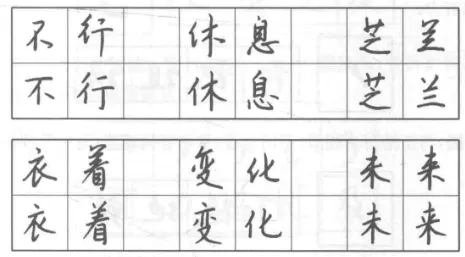 不行 休息 芝兰
不行 休息 芝兰
衣着 变化 未来
衣着 变化 未来